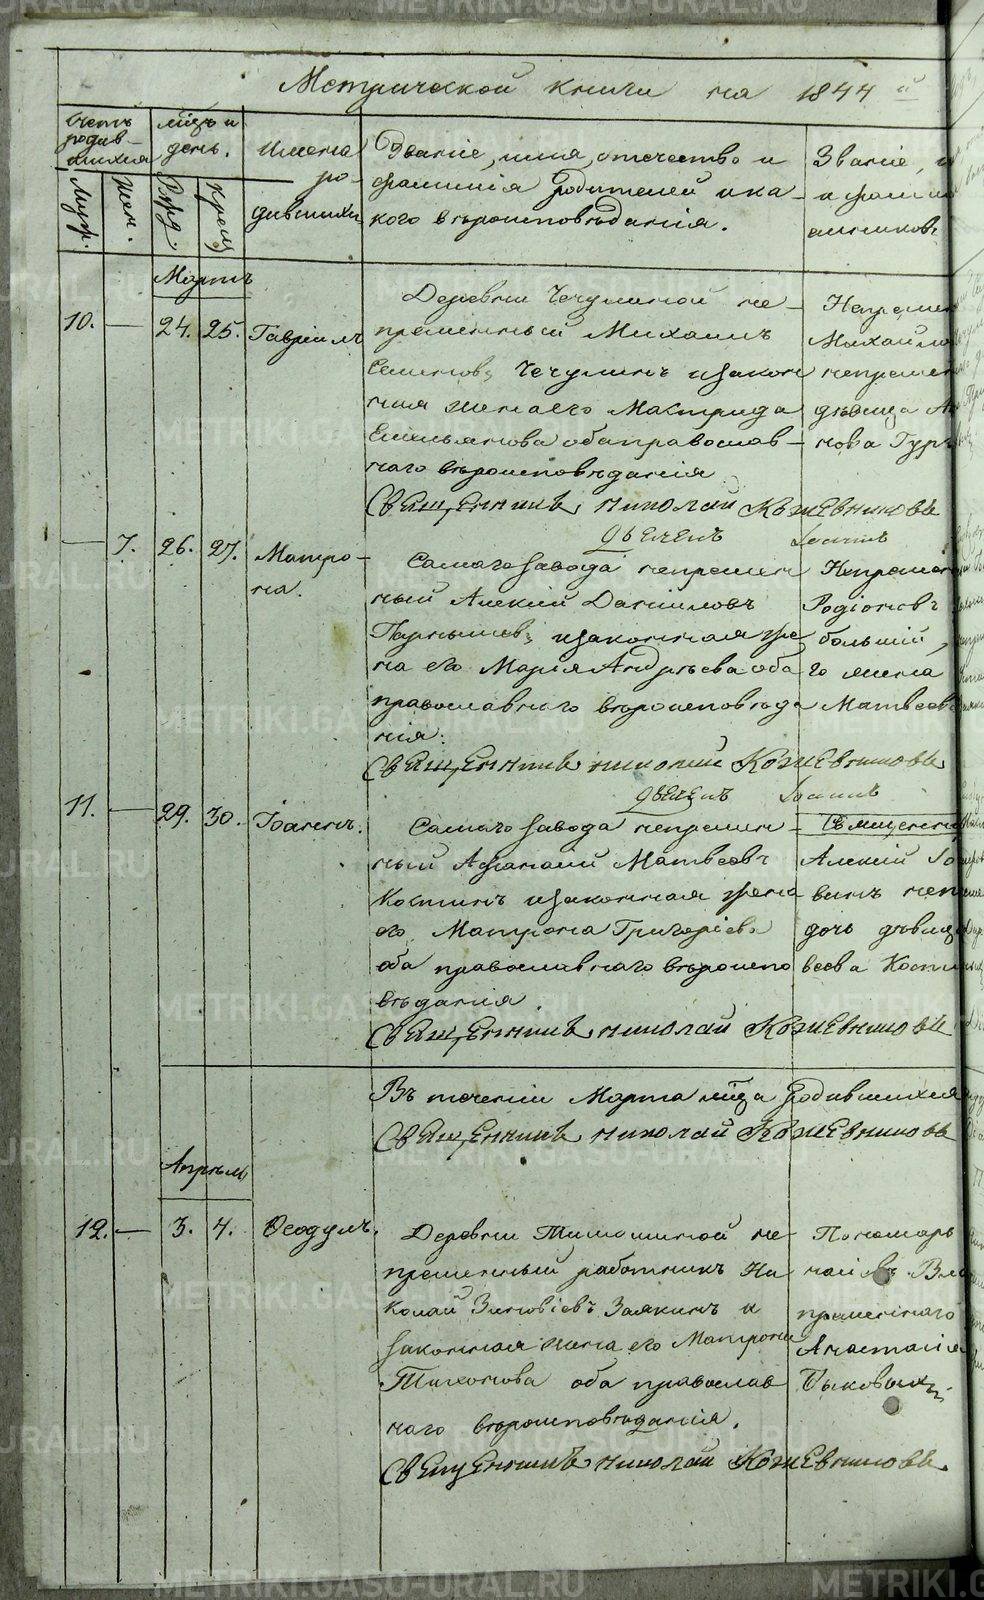 Метрической книги на 1844 й
Счетъ родившихся
мѣсъ и день.
Имена родившихъ
Званіе, имя, отечество и
фамилія родителей и ка-
кого вѣроисповѣданія.
Званіе, и
и фамил
емников
Муж. Жен. Рожд. Крещ.
Мартъ
10. — 24. 25. Гавріилъ
Деревни Чечулиной не-
премѣнный Михаилъ
Семеновъ Чечулинъ и закон
ная жена его Матрида
Емельянова оба православ-
наго вѣроисповѣданія
Священникъ Николай Кожевниковъ
Непремен
Михайло
непремен
дѣвица А
нова Гур
— 7. 26. 27. Матро-
на.
Самаго завода непремен
ный Алексій Даниловъ
Парышев и законная же
на его Марія Андреева оба
православнаго вѣроисповѣда
нія.
Священникъ Николай Кожевниковъ
Іоаннъ
Непремен
Родіоновъ
большій,
го жена
Матвеев
11. — 29. 30. Іоаннъ.
Самаго завода непремен
ный Афанасій Матвеевъ
Костинъ и законная жена
его Матрона Григоріева
оба православнаго вѣроиспо
вѣданія
Священникъ Николай Кожевниковъ
Іоаннъ
Священно
Алексій Іо
винъ неп
дочь дѣвица
веева Кост
Въ теченіи Марта мѣца родившихся
Священникъ Николай Кожевниковъ
Апрѣль
12. — 3. 4. Ѳеодулъ.
Деревни Тимошиной не-
премѣнный работникъ Ни
колай Зиновіевъ Заякинъ и
законная жена его Матрона
Тихонова оба православ
наго вѣроисповѣданія.
Священникъ Николай Кожевниковъ
Пономарь
Вла
пременнаго
Анастасія
Быковых
METRIKI.GASO-URAL.RU